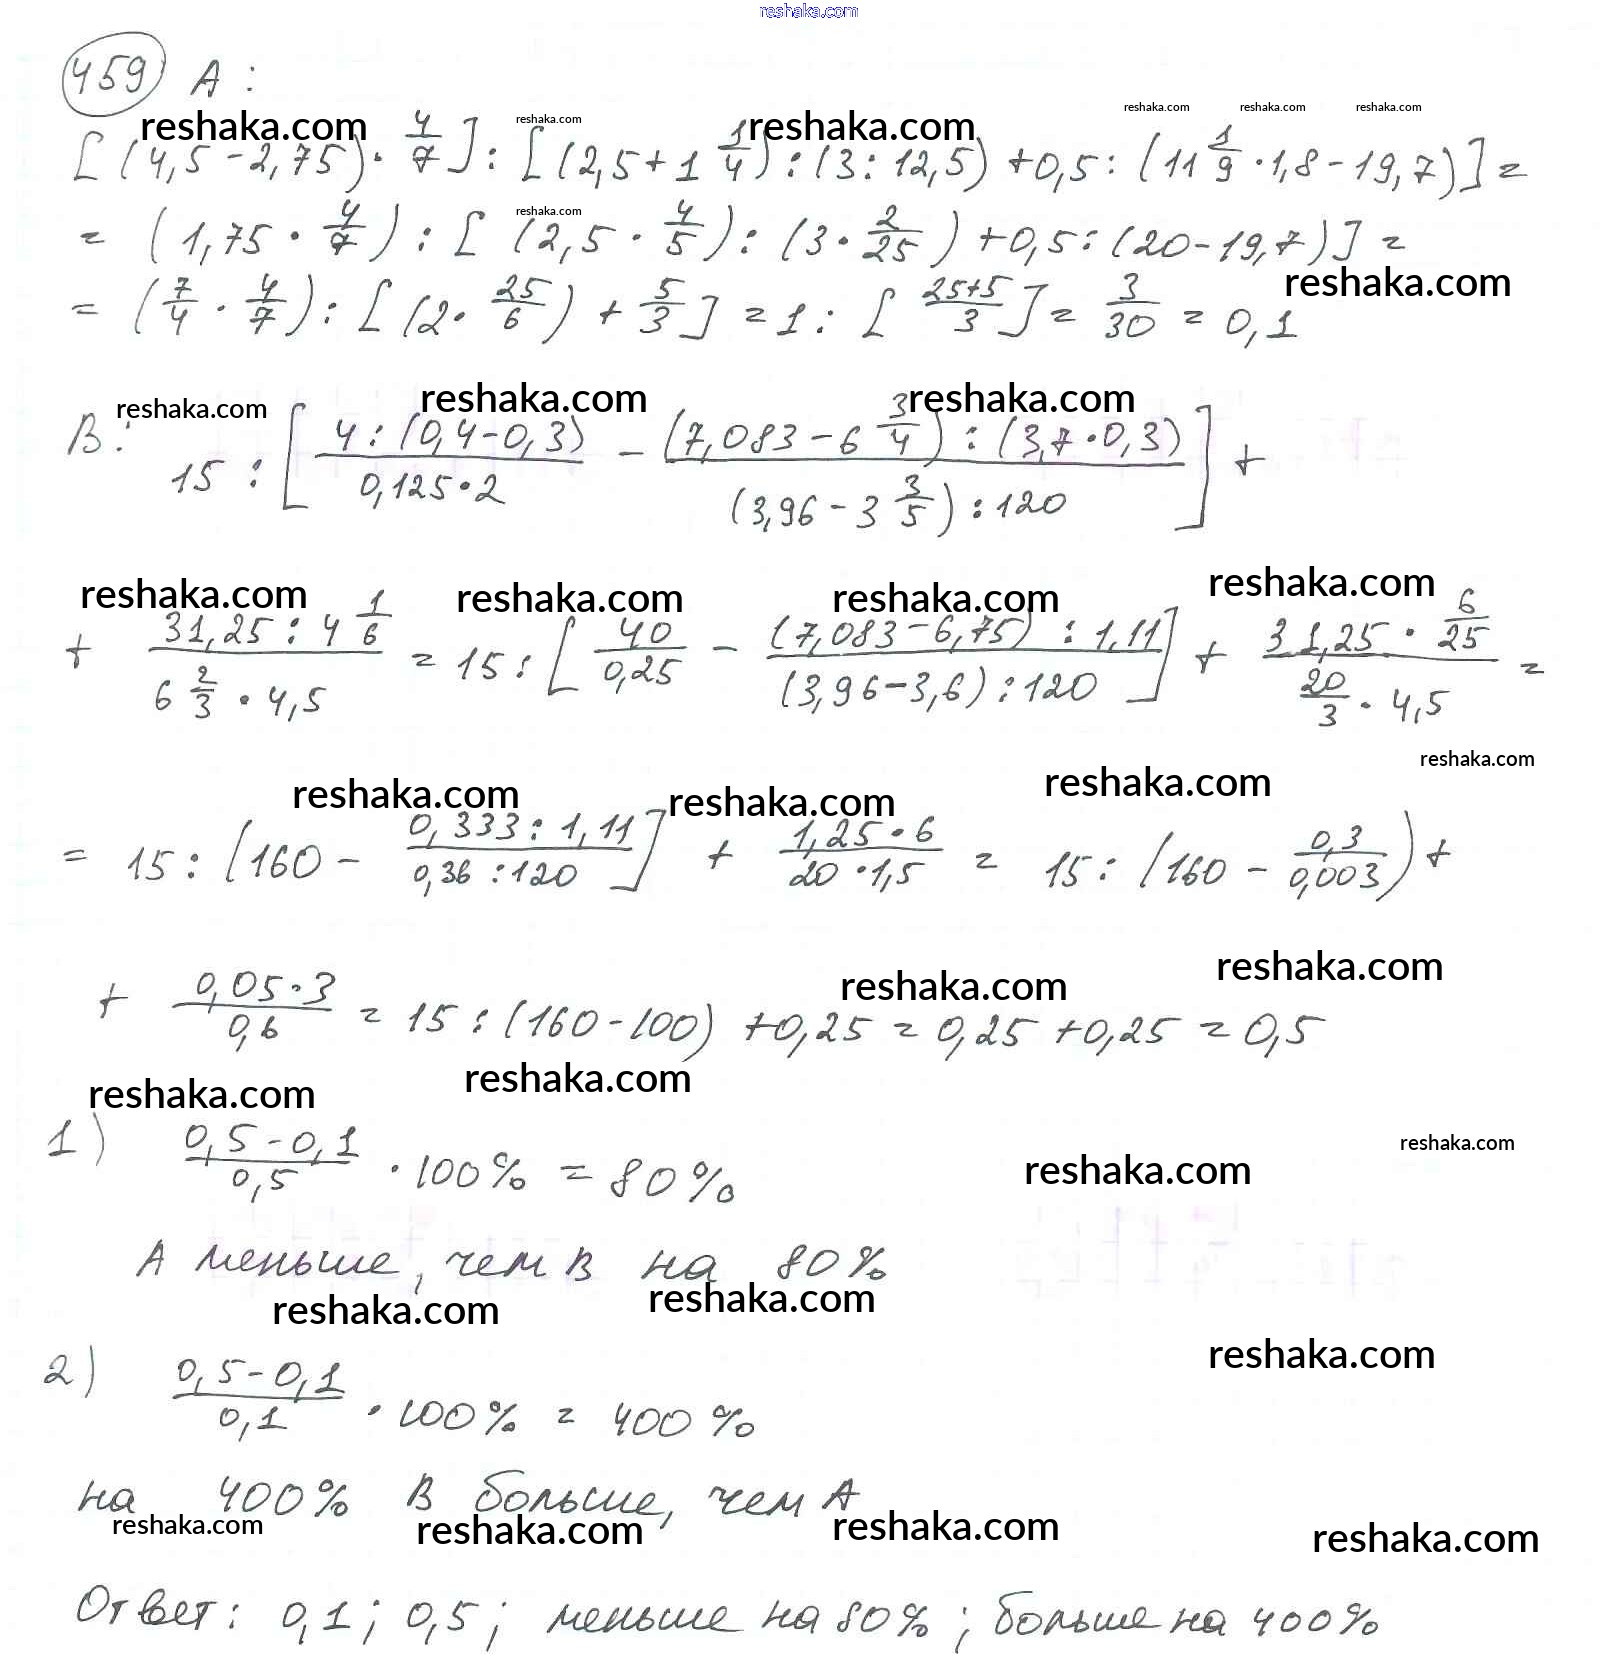 reshaka.com
459 А:
reshaka.com reshaka.com reshaka.com reshaka.com reshaka.com reshaka.com
[(4,5-2,75)·4/7]:[(2,5+1 1/4):(3:12,5)+0,5:(11 1/9·1,8-19,7)]=
reshaka.com
=(1,75·4/7):[(2,5·4/5):(3·2/25)+0,5:(20-19,7)]=
reshaka.com
=(7/4·4/7):[(2·25/6)+5/3]=1:[(25+5)/3]=3/30=0,1
reshaka.com reshaka.com reshaka.com
В: 15:[4:(0,4-0,3)/(0,125·2) - (7,083-6 3/4):(3,7·0,3)/((3,96-3 3/5):120)]+
reshaka.com reshaka.com reshaka.com reshaka.com
+ (31,25:4 1/6)/(6 2/3·4,5) = 15:[40/0,25 - (7,083-6,75):1,11/((3,96-3,6):120)] + (31,25·6/25)/(20/3·4,5) =
reshaka.com
reshaka.com reshaka.com reshaka.com
= 15:[160 - (0,333:1,11)/(0,36:120)] + (1,25·6)/(20·1,5) = 15:(160 - 0,3/0,003)+
reshaka.com reshaka.com
+ (0,05·3)/0,6 = 15:(160-100)+0,25=0,25+0,25=0,5
reshaka.com reshaka.com
1) (0,5-0,1)/0,5 · 100% = 80%
reshaka.com reshaka.com
А меньше, чем В на 80%
reshaka.com reshaka.com
reshaka.com
2) (0,5-0,1)/0,1 · 100% = 400%
на 400% В больше, чем А
reshaka.com reshaka.com reshaka.com reshaka.com
Ответ: 0,1; 0,5; меньше на 80%; больше на 400%